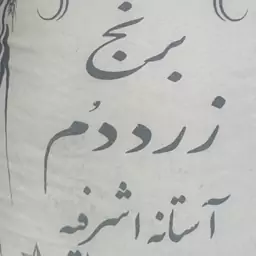 برنج
زرد دُم
آستانه اشرفیه